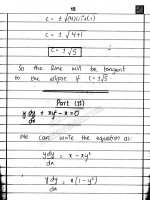 15
c = ± √(4)(1)²+(1)
c = ± √4+1
c = ± √5
So the line will be tangent
to the ellipse if c=±√5
Part (ii)
y dy/dx + xy² - x = 0
We can write the equation as:
y dy/dx = x - xy²
y dy/dx = x(1-y²)